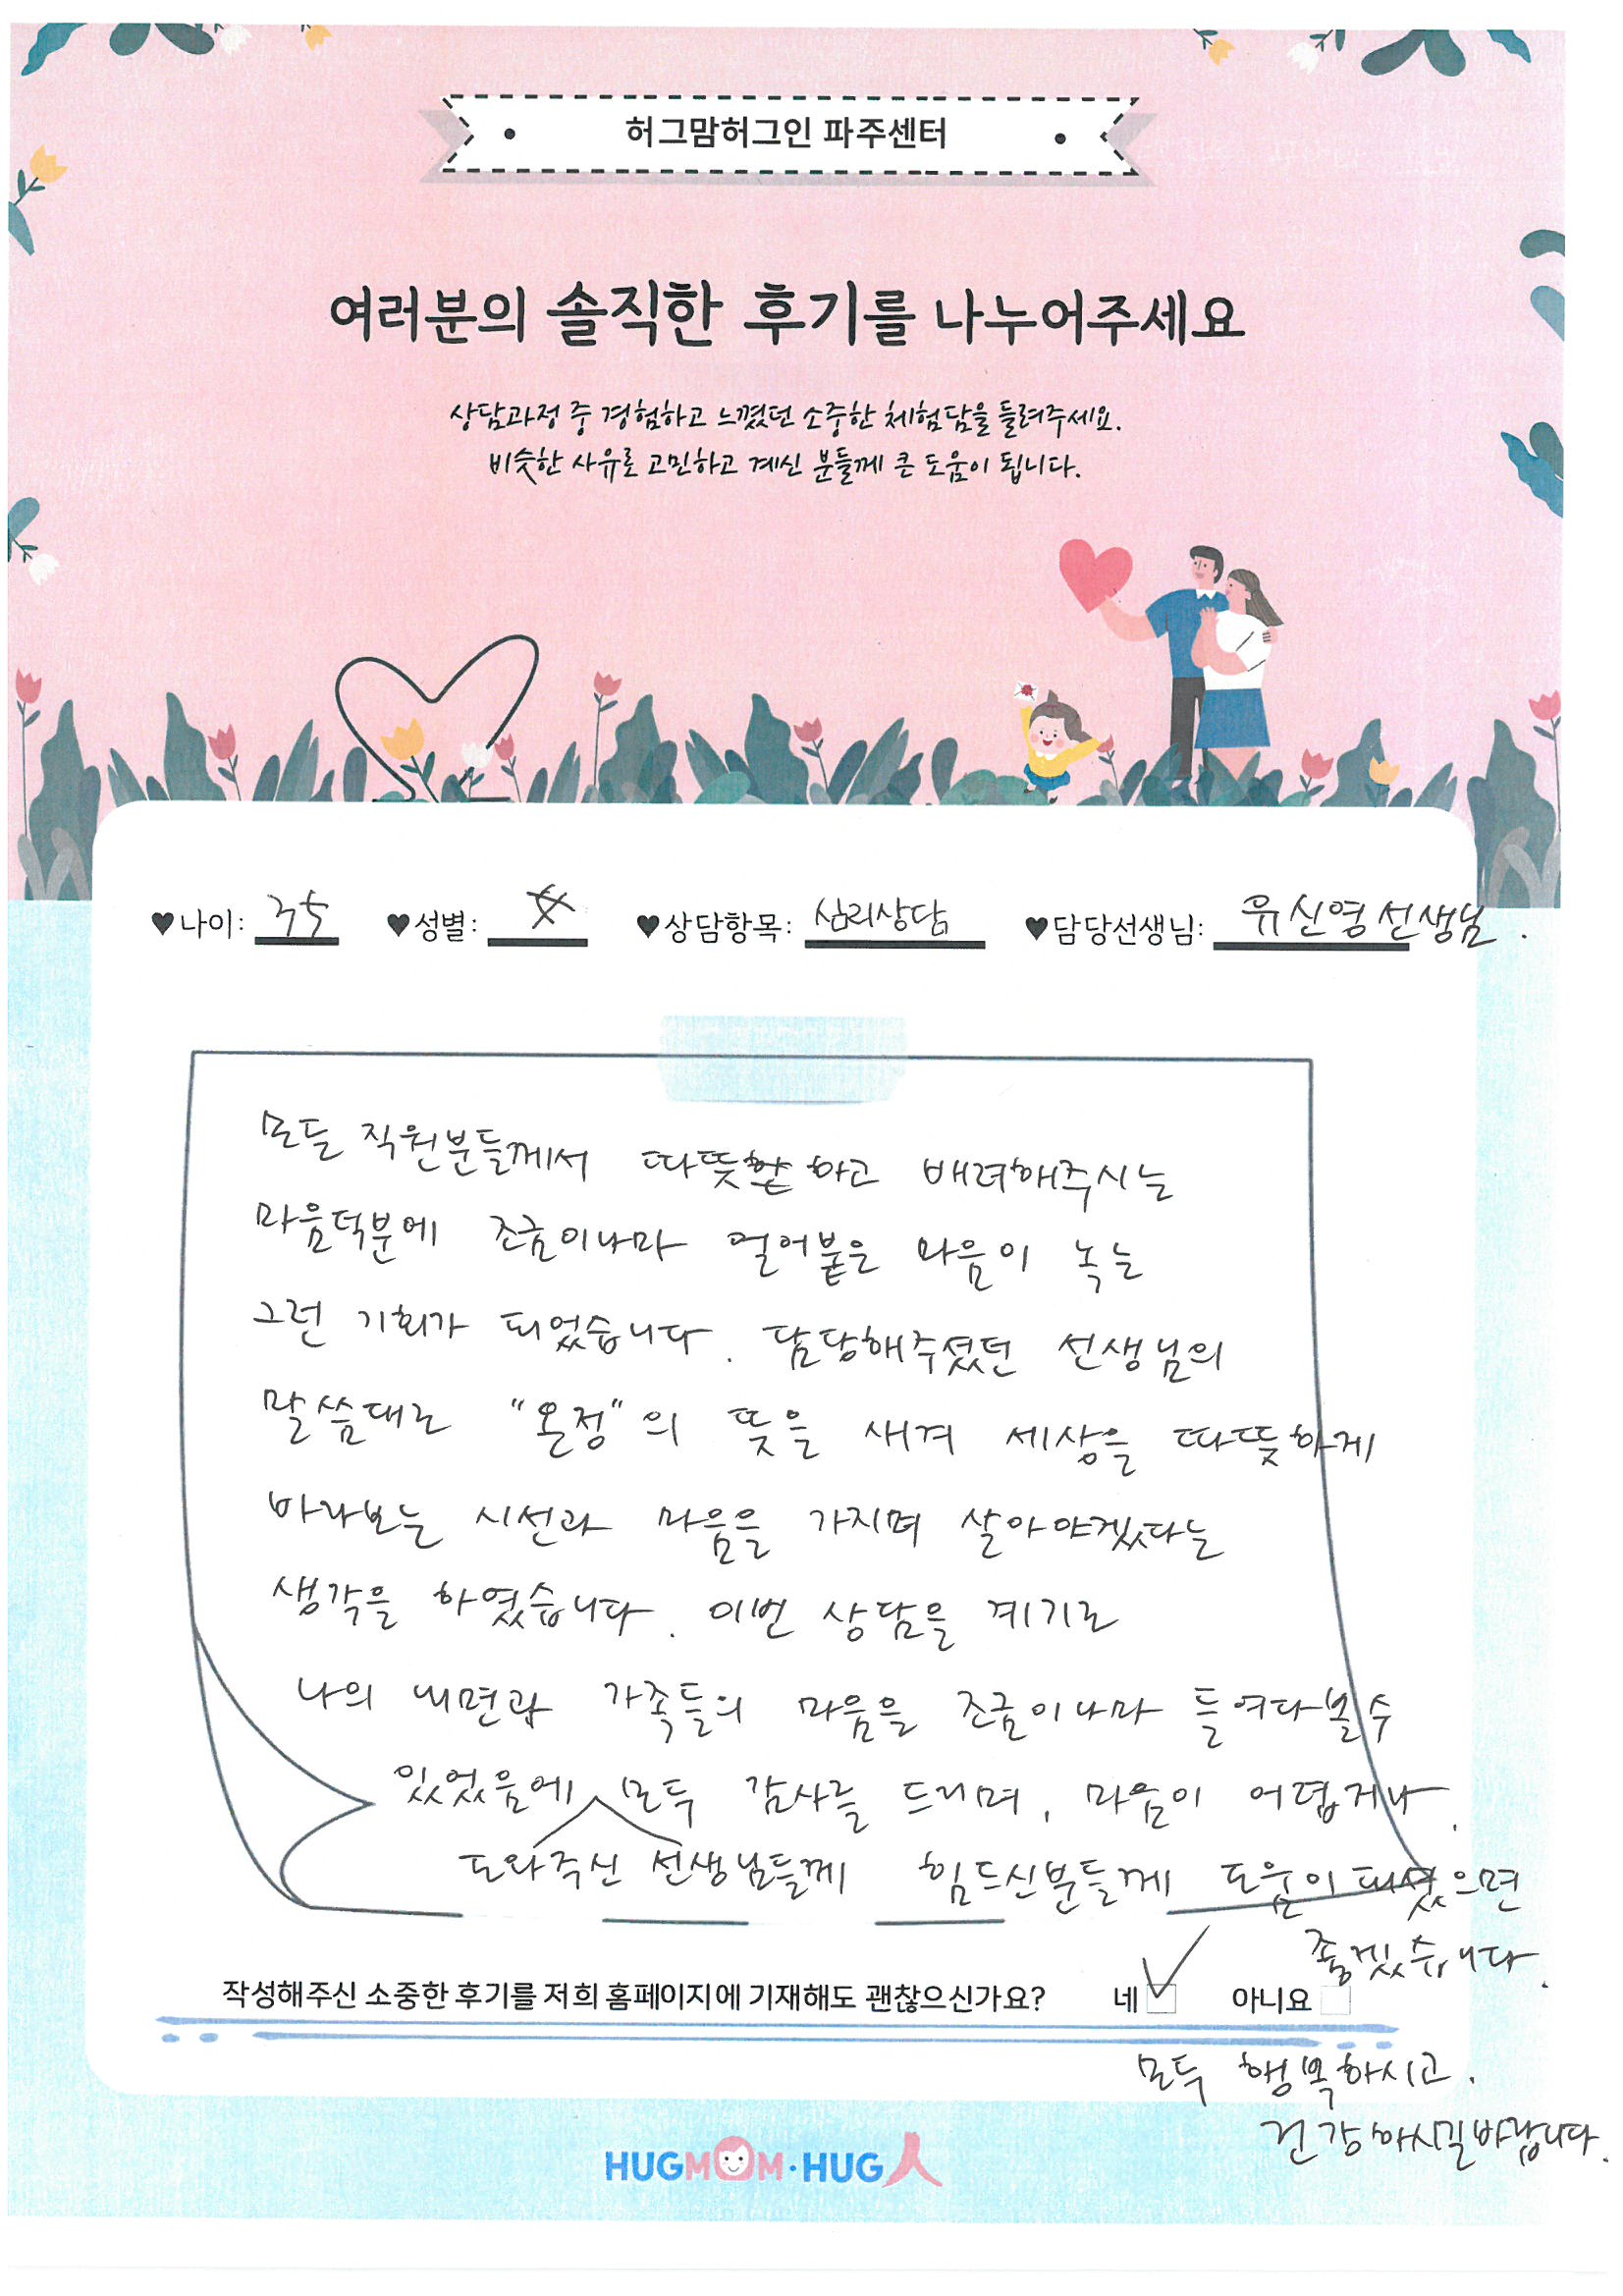 허그맘허그인 파주센터
여러분의 솔직한 후기를 나누어주세요
상담과정 중 경험하고 느꼈던 소중한 체험담을 들려주세요.
비슷한 사유로 고민하고 계신 분들께 큰 도움이 됩니다.
♥나이: 35 ♥성별: 女 ♥상담항목: 심리상담 ♥담당선생님: 유신영선생님.
모든 직원분들께서 따뜻하고 배려해주시는
마음덕분에 조금이나마 얼어붙은 마음이 녹는
그런 기회가 되었습니다. 담당해주셨던 선생님의
말씀대로 "온정"의 뜻을 새겨 세상을 따뜻하게
바라보는 시선과 마음을 가지며 살아야겠다는
생각을 하였습니다. 이번 상담을 계기로
나의 내면과 가족들의 마음을 조금이나마 들여다볼수
있었음에 모두 감사를 드리며, 마음이 어렵거나,
도와주신 선생님들께 힘드신분들께 도움이 되셨으면
좋겠습니다.
작성해주신 소중한 후기를 저희 홈페이지에 기재해도 괜찮으신가요? 네 ✓ 아니요
모두 행복하시고.
건강하시길바랍니다.
HUGMOM·HUG人